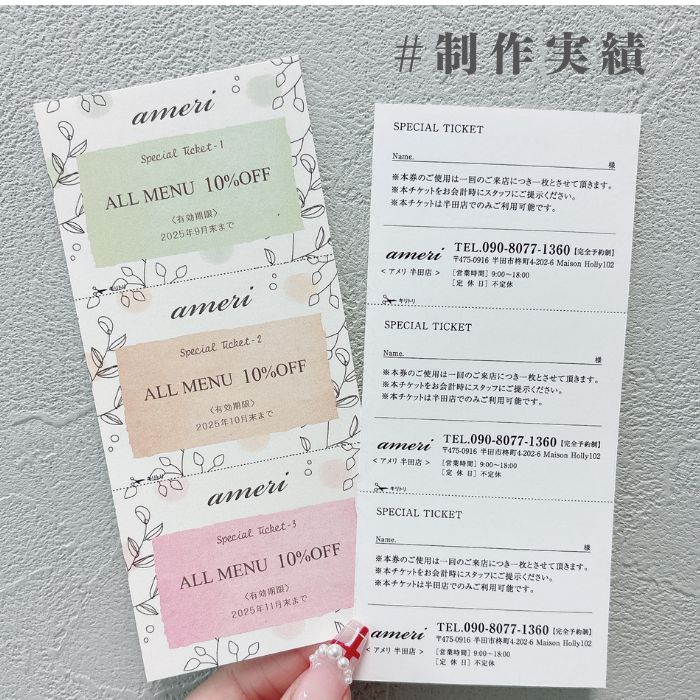 #制作実績
ameri
Special Ticket-1
ALL MENU 10%OFF
〈有効期限〉
2025年9月末まで
キリトリ
ameri
Special Ticket-2
ALL MENU 10%OFF
〈有効期限〉
2025年10月末まで
キリトリ
ameri
Special Ticket-3
ALL MENU 10%OFF
〈有効期限〉
2025年11月末まで
SPECIAL TICKET
Name. 様
※本券のご使用は一回のご来店につき一枚とさせて頂きます。
※本チケットをお会計時にスタッフにご提示ください。
※本チケットは半田店でのみご利用可能です。
ameri TEL.090-8077-1360【完全予約制】
〒475-0916 半田市柊町4-202-6 Maison Holly102
< アメリ 半田店 > [営業時間] 9:00~18:00
[定 休 日] 不定休
キリトリ
SPECIAL TICKET
Name. 様
※本券のご使用は一回のご来店につき一枚とさせて頂きます。
※本チケットをお会計時にスタッフにご提示ください。
※本チケットは半田店でのみご利用可能です。
ameri TEL.090-8077-1360【完全予約制】
〒475-0916 半田市柊町4-202-6 Maison Holly102
< アメリ 半田店 > [営業時間] 9:00~18:00
[定 休 日] 不定休
キリトリ
SPECIAL TICKET
Name. 様
※本券のご使用は一回のご来店につき一枚とさせて頂きます。
※本チケットをお会計時にスタッフにご提示ください。
※本チケットは半田店でのみご利用可能です。
ameri TEL.090-8077-1360【完全予約制】
〒475-0916 半田市柊町4-202-6 Maison Holly102
< アメリ 半田店 > [営業時間] 9:00~18:00
[定 休 日] 不定休